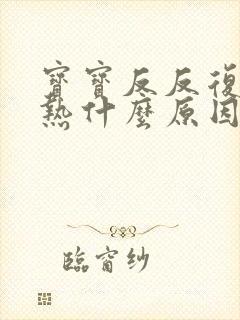 寶寶反反復
熱什麼原因
臨窗紗